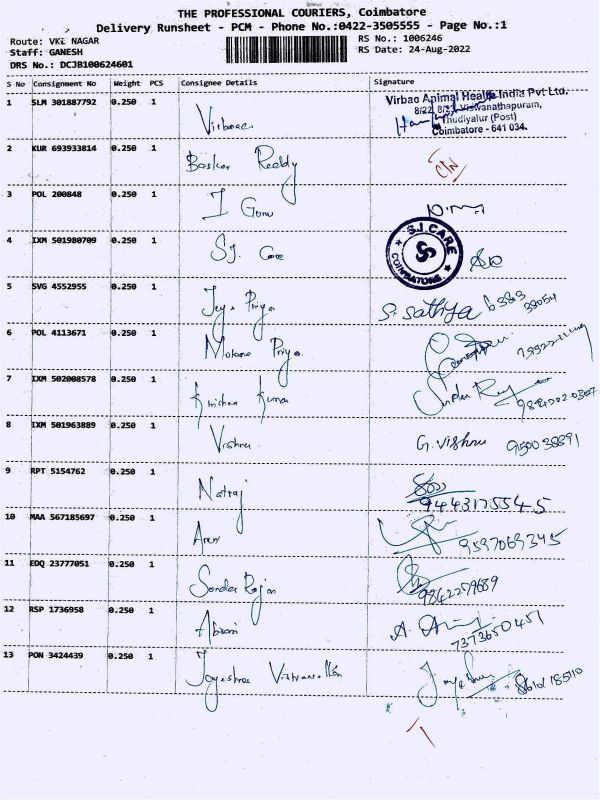 THE PROFESSIONAL COURIERS, Coimbatore
Delivery Runsheet - PCM - Phone No.:0422-3505555 - Page No.:1
Route: VKL NAGAR RS No.: 1006246
Staff: GANESH RS Date: 24-Aug-2022
DRS No.: DCJB100624601
S No Consignment No Weight PCS Consignee Details Signature
1 SLM 301887792 0.250 1 Virbac
Virbac Animal Health India Pvt Ltd.
8/22, 8/33, Viswanathapuram,
Thudiyalur (Post)
Coimbatore - 641 034.
2 KUR 693933814 0.250 1 Basker Reddy
3 POL 200848 0.250 1 I Guru
4 IXM 501980709 0.250 1 SJ. Care
S.J. CARE COIMBATORE
5 SVG 4552955 0.250 1 Jeya Priya S. Sathiya
6 POL 4113671 0.250 1 Mohana Priya
7 IXM 502008578 0.250 1 Krishna Kumar
8 IXM 501963889 0.250 1 Vishnu G. Vishnu
9 RPT 5154762 0.250 1 Natraj
9443175545
10 MAA 567185697 0.250 1 Arun 9597069345
11 EDQ 23777051 0.250 1 Sondar Rajan
9842279689
12 RSP 1736958 0.250 1 Abirami
7373650451
13 PON 3424439 0.250 1 Jayashree